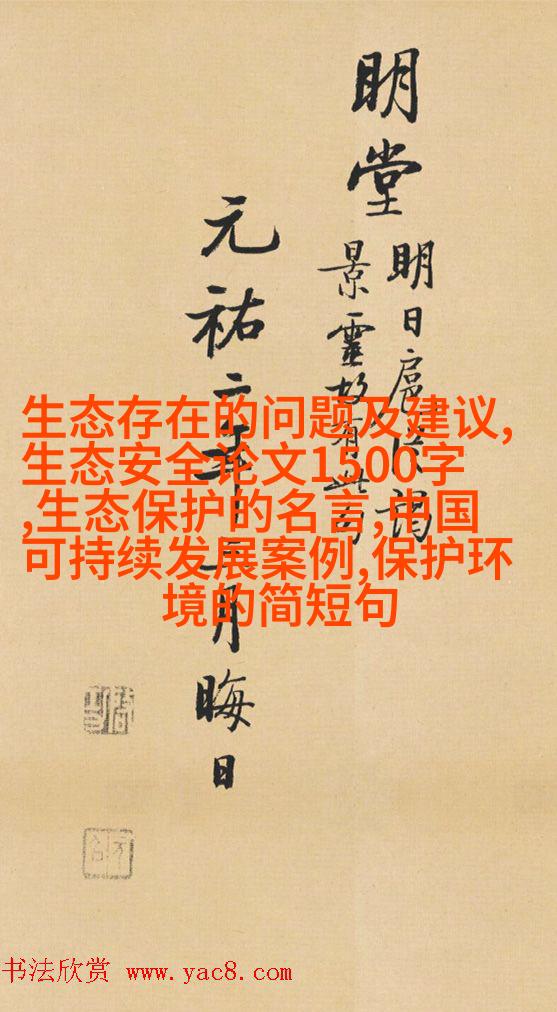 明堂
明日扈從謁
景靈故有此句
元祐二年月晦日
生态存在的问题及建议,
生态安全论文1500字
,生态保护的名言,中国
可持续发展案例,保护环
境的简短句
书法欣赏 www.yac8.com